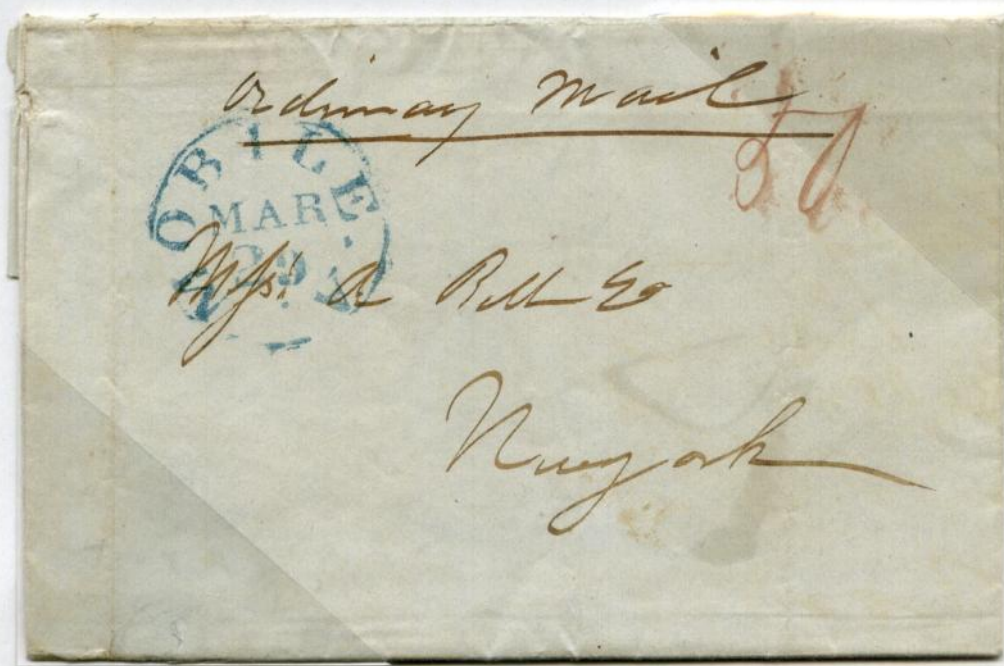 Ordinary Mail
50
MOBILE
MAR
29
Messrs A Bell & Co
Newyork